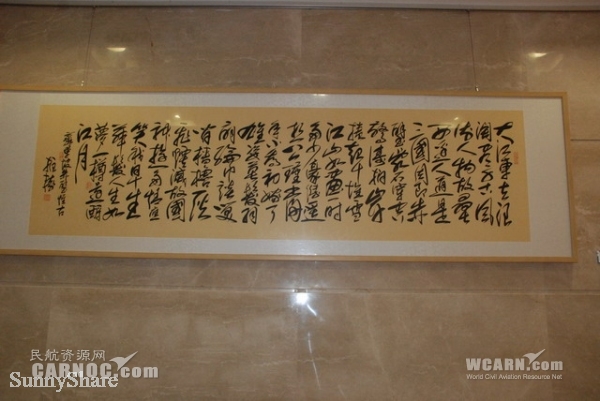 大江東去浪
淘盡千古風
流人物故壘
西邊人道是
三國周郎赤
壁亂石穿空
驚濤拍岸
捲起千堆雪
江山如畫一時
多少豪傑遙
想公瑾當年
小喬初嫁了
雄姿英發羽
扇綸巾談笑
間檣櫓灰
飛煙滅故國
神遊多情應
笑我早生
華髮人生如
夢一樽還酹
江月
民航资源网
CARNOC.com
SunnyShare
WCARN.com
World Civil Aviation Resource Net